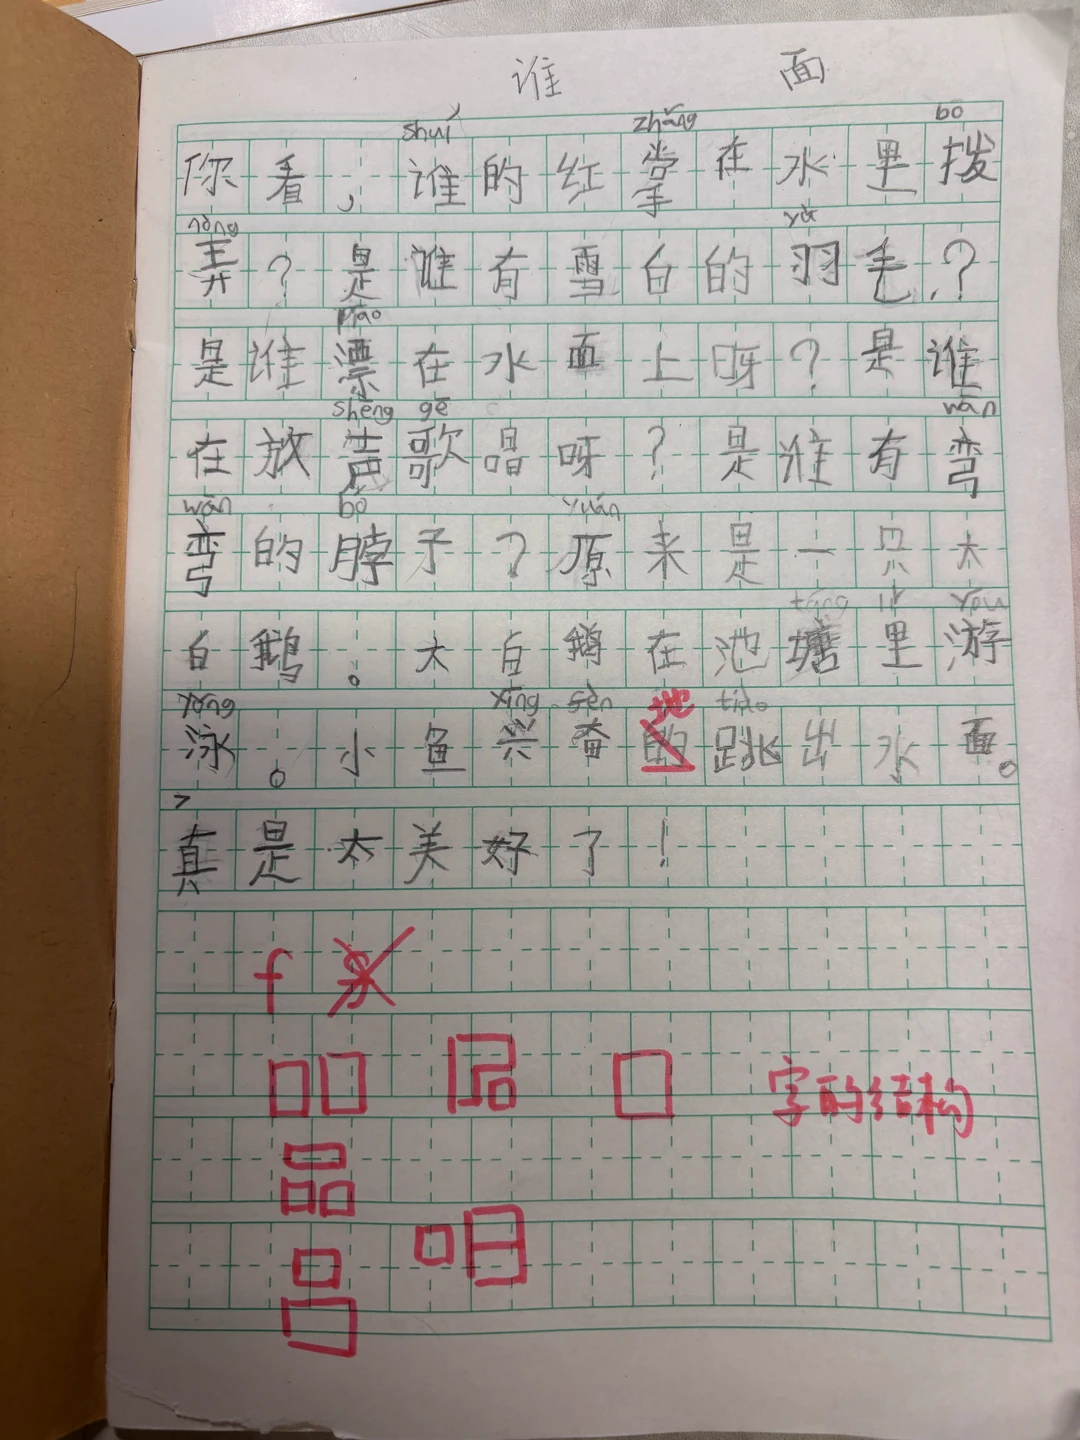 谁 面
shuí zhǎng bō
你看，谁的红掌在水里拨
nòng yǔ
弄？是谁有雪白的羽毛？
piāo
是谁漂在水面上呀？是谁
shēng gē wān
在放声歌唱呀？是谁有弯
wān bó yuán
弯的脖子？原来是一只大
táng lǐ yóu
白鹅。大白鹅在池塘里游
yǒng xīng fèn 地 tiào
泳。小鱼兴奋的跳出水面。
真是太美好了！
f
字的结构